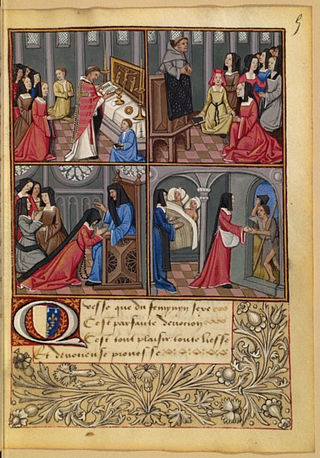 Quesse que du femynyn sexe
Cest parfaite devotion
Cest tout plaisir toute liesse
Et devocieuse prouesse